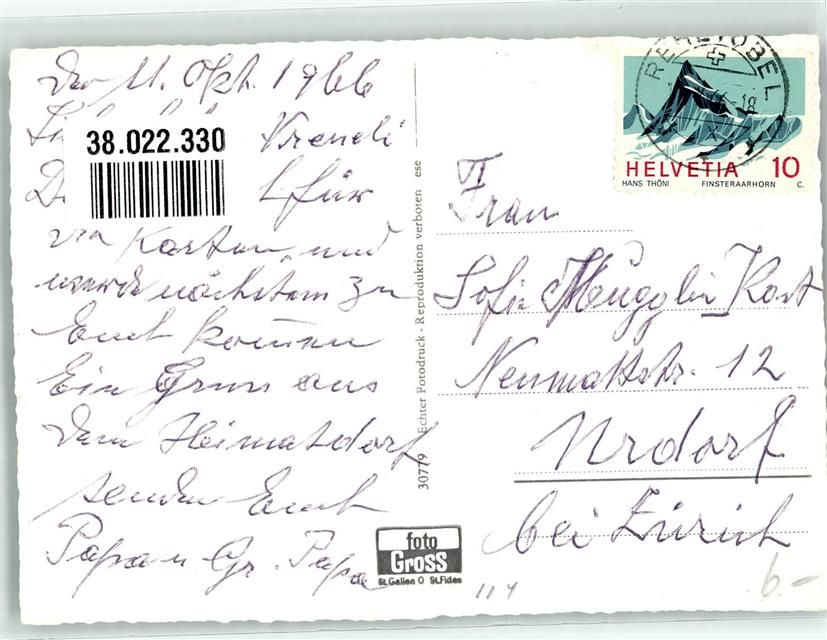 den 11. Okt. 1966
Vreneli
38.022.330
für
Karten und
werde nächstens zu
Euch kommen
Ein Gruss aus
dem Heimatdorf
senden Euch
Papa u Gr. Papa
30779 Echter Fotodruck - Reproduktion verboten ese
foto
Gross
St.Gallen O St.Fiden
REHETOBEL
18
HELVETIA 10
HANS THÖNI FINSTERAARHORN C.
Frau
Sofie Müggler-Kast
Neumattstr. 12
Urdorf
bei Zürich
114
6.-